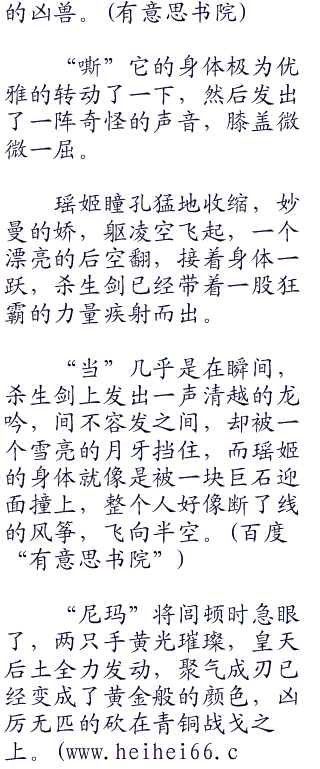 的凶兽。(有意思书院)
“嘶”它的身体极为优
雅的转动了一下，然后发出
了一阵奇怪的声音，膝盖微
微一屈。
瑶姬瞳孔猛地收缩，妙
曼的娇，躯凌空飞起，一个
漂亮的后空翻，接着身体一
跃，杀生剑已经带着一股狂
霸的力量疾射而出。
“当”几乎是在瞬间，
杀生剑上发出一声清越的龙
吟，间不容发之间，却被一
个雪亮的月牙挡住，而瑶姬
的身体就像是被一块巨石迎
面撞上，整个人好像断了线
的风筝，飞向半空。(百度
“有意思书院”)
“尼玛”将闾顿时急眼
了，两只手黄光璀璨，皇天
后土全力发动，聚气成刃已
经变成了黄金般的颜色，凶
厉无匹的砍在青铜战戈之
上。(www.heihei66.c